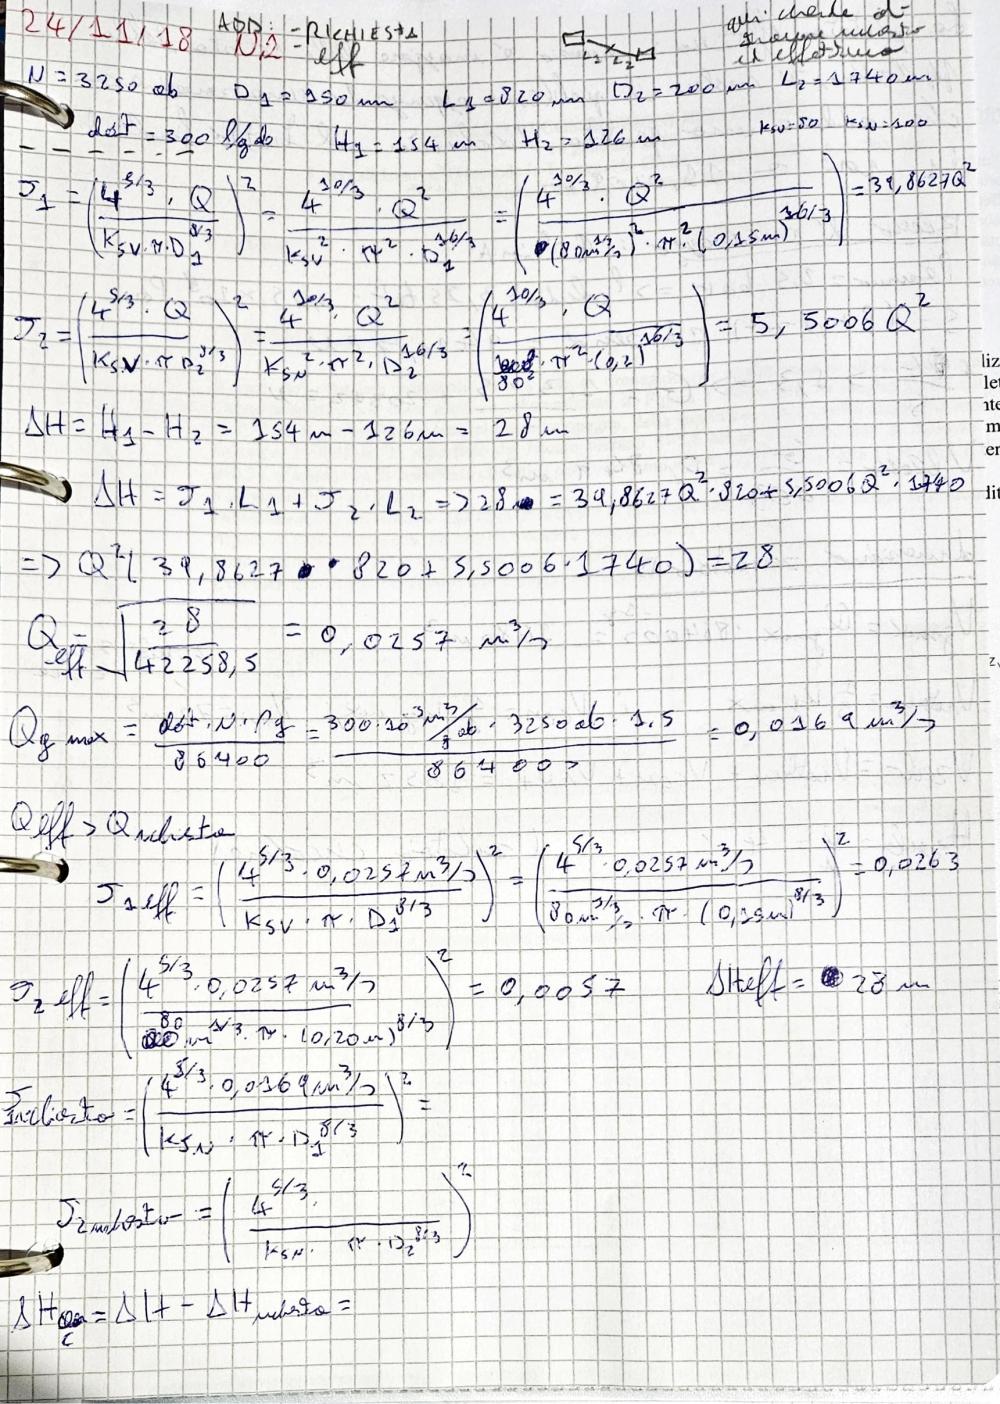 24/11/18 ADD: N.2 - RICHIESTA
- eff
qui chiede di
in effettivo
L1 L2
N = 3250 ab D1 = 150 mm L1 = 820 m D2 = 200 mm L2 = 1740 m
dot = 300 l/g ab H1 = 154 m H2 = 126 m KSV=80 KSN=100
J1 = (4^5/3 · Q / KSV·π·D1^8/3)^2 = 4^10/3 · Q^2 / KSV^2 · π^2 · D1^16/3 = (4^10/3 · Q^2 / (80m^1/3)^2 · π^2 · (0,15m)^16/3) = 39,8627Q^2
J2 = (4^5/3 · Q / KSV·π D2^8/3)^2 = 4^10/3 · Q^2 / KSN^2 · π^2 · D2^16/3 = (4^10/3 · Q / 80^2 · π^2 · (0,2)^16/3) = 5,5006 Q^2
ΔH = H1 - H2 = 154 m - 126 m = 28 m
ΔH = J1 · L1 + J2 · L2 => 28 = 39,8627Q^2·820+5,5006Q^2·1740
=> Q^2(39,8627 · 820 + 5,5006·1740) = 28
Qeff = √(28 / 42258,5) = 0,0257 m^3/s
Qg max = dot·N·Pg / 86400 = 300·10^-3 m^3/g ab · 3250 ab · 1.5 / 86400 s = 0,0169 m^3/s
Qeff > Qrichiesta
J1 eff = (4^5/3 · 0,0257 m^3/s / KSV · π · D1^8/3)^2 = (4^5/3 · 0,0257 m^3/s / 80 m^1/3/s · π · (0,15m)^8/3)^2 = 0,0263
J2 eff = (4^5/3 · 0,0257 m^3/s / 80 m^1/3 · π · (0,20m)^8/3)^2 = 0,0057 ΔHeff = 28 m
J1richiesta = (4^5/3 · 0,0169 m^3/s / KSN · π · D1^8/3)^2 =
J2richiesta = (4^5/3 · / KSN · π · D2^8/3)^2
ΔHc = ΔH - ΔHrichiesta =
liz
let
nte
m
er
lit
z,